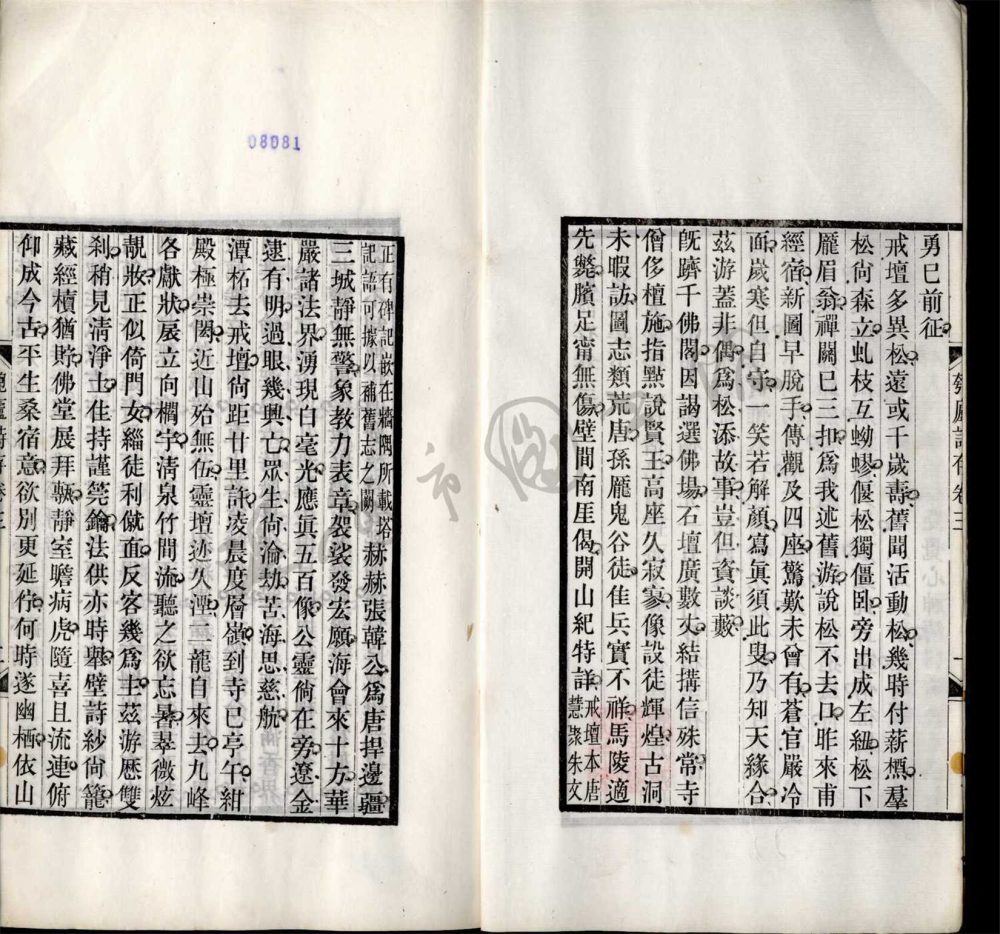 勇巳前征
戒壇多異松遠或千歲壽舊聞活動松幾時付薪槱羣
松尙森立虬枝互蚴蟉偃松獨僵臥旁出成左紐松下
龐眉翁禪關巳三扣爲我述舊游說松不去口昨來甫
經宿新圖早脫手傳觀及四座驚歎未曾有蒼官嚴冷
面歲寒但自守一笑若解顏寫眞須此叟乃知天緣合
茲游蓋非偶爲松添故事豈但資談藪
旣躋千佛閣因謁選佛場石壇廣數丈結搆信殊常寺
僧侈檀施指點說賢王高座久寂寥像設徒輝煌古洞
未暇訪圖志類荒唐孫龐鬼谷徒佳兵實不祥馬陵適
先斃臏足甯無傷壁間南厓偈開山紀特詳戒壇本唐
慧聚朱文
正有碑記嵌在牆隅所載塔
記語可據以補舊志之闕赫赫張韓公爲唐捍邊疆
三城靜無警象教力表章袈裟發宏願海會來十方華
嚴諸法界湧現白毫光應眞五百像公靈倘在旁遼金
逮有明過眼幾興亡眾生尙淪劫苦海思慈航
潭柘去戒壇尙距廿里許凌晨度層嶺到寺巳亭午紺
殿極崇閎近山殆無伍靈壇迹久湮二龍自來去九峰
各獻狀扆立向欄宇清泉竹間流聽之欲忘暑翠微炫
靚妝正似倚門女緇徒利僦面反客幾爲主茲游歷雙
剎稍見清淨土住持謹筦鑰法供亦時舉壁詩紗尙籠
藏經櫝猶貯佛堂展拜甎靜室瞻病虎隨喜且流連俯
仰成今古平生桑宿意欲別更延佇何時遂幽栖依山
卷三
一
08081